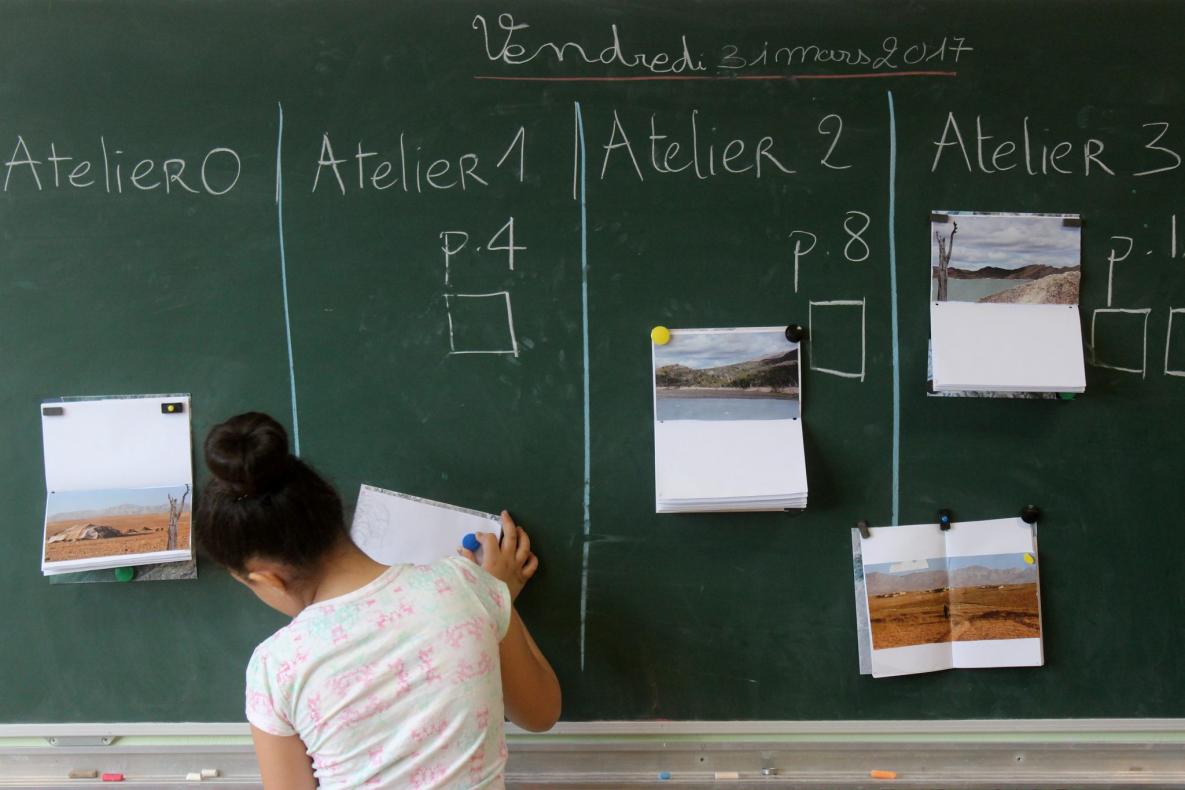 Vendredi 31 mars 2017
Atelier 0
Atelier 1
Atelier 2
Atelier 3
p.4
p.8
p.1